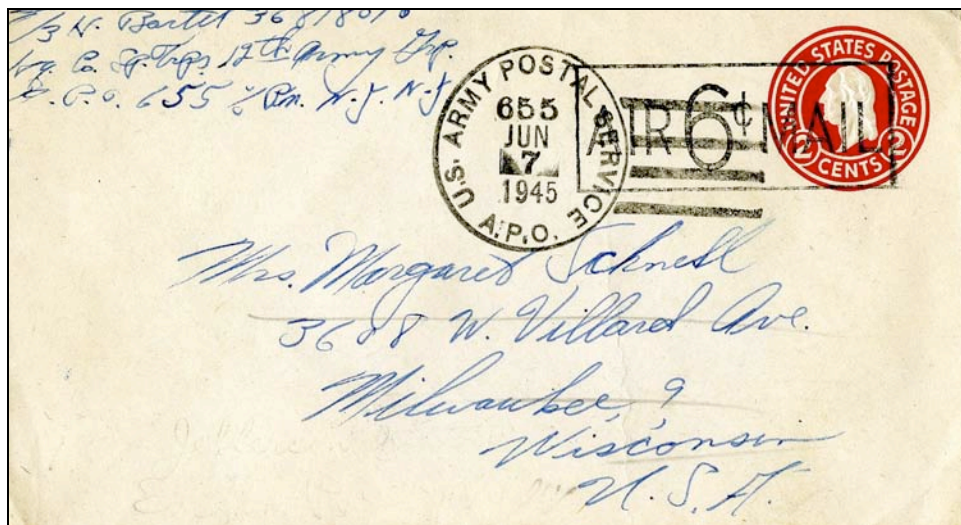 T/3 H. Bartel 36818010
Hq. Co. Sp. Trps. 12th Army Grp.
A.P.O. 655 % Pm. N.Y. N.Y
U.S. ARMY POSTAL SERVICE
655
JUN
7
1945
A.P.O.
AIR 6¢ MAIL
UNITED STATES POSTAGE
2 CENTS 2
Mrs. Margaret Schnell
3688 W. Villard Ave.
Milwaukee, 9
Wisconsin
U.S.A.